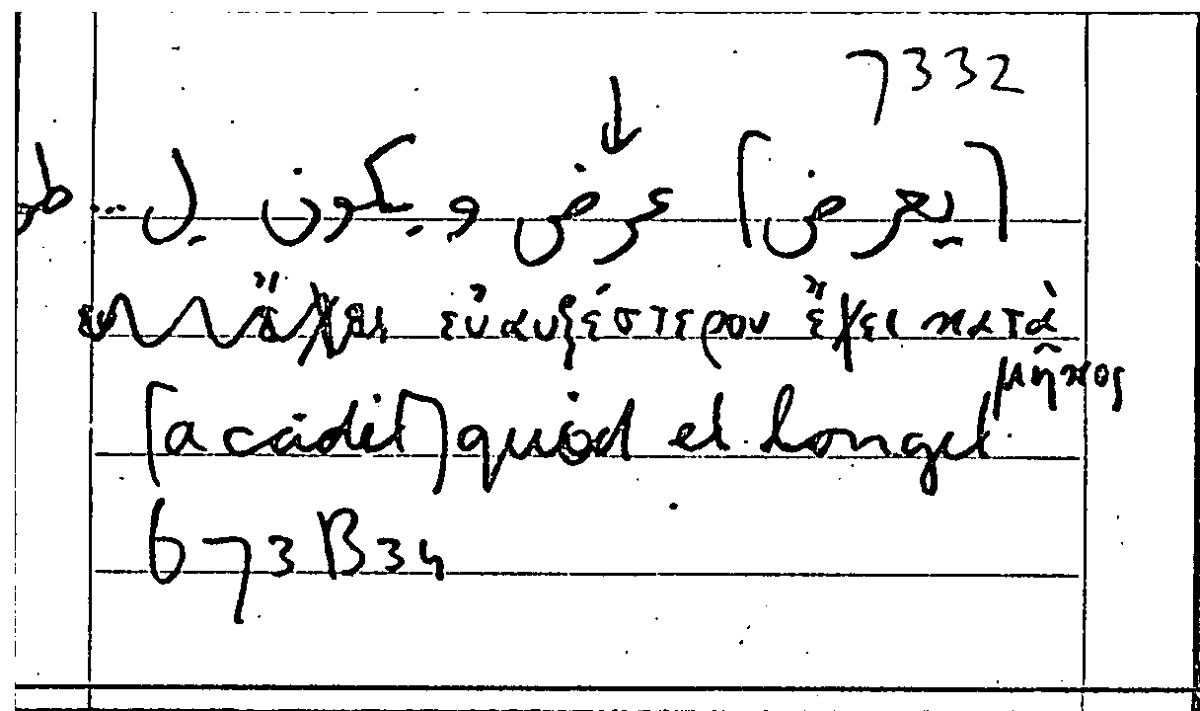 7332
[يعرض] عرض ويكون بل ... طو
εὐαυξέστερον ἔχει κατὰ
μῆκος
[accidit] quod el longet
673B34